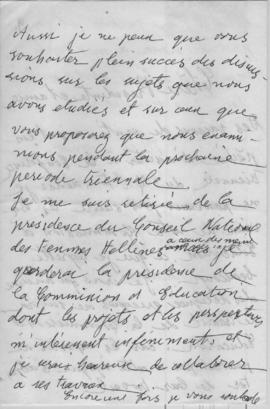 Aussi je ne peux que vous
souhaiter plein succes des discus-
sions sur les sujets que nous
avons etudiés et sur ceux que
vous proposerez que nous exami-
nions pendant la prochaine
periode triennale.
Je me suis retirée de la
presidence du Conseil National
des Femmes Hellenes je
garderai la presidence de
la Commission d'Education
dont les projets et les perspectives
m'intéressent infiniment et
je serais heureux de collaborer
a ses travaux
Encore une fois je vous souhaite